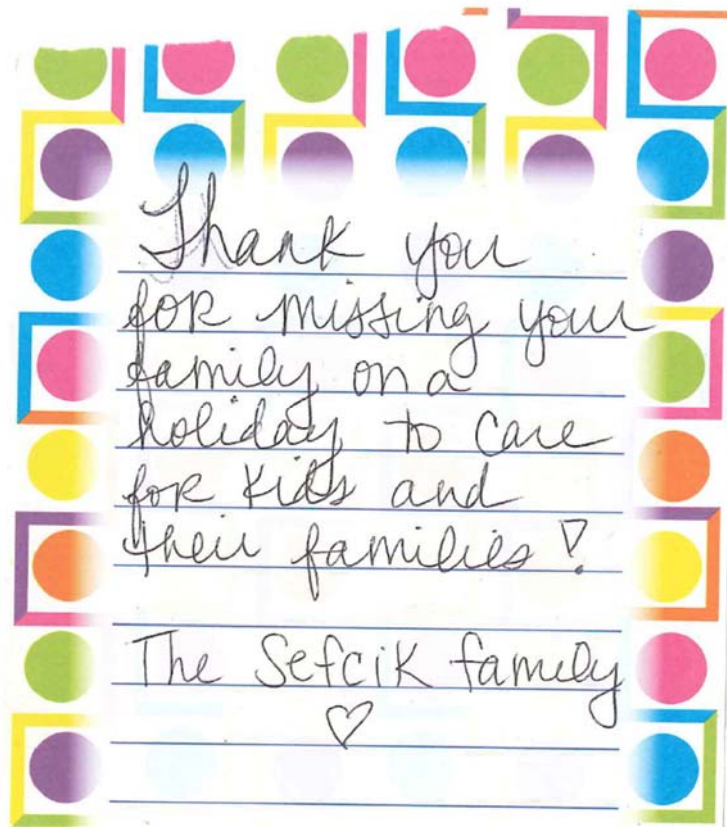 Thank you
for missing your
family on a
holiday to care
for kids and
their families!
The Sefcik family
♡